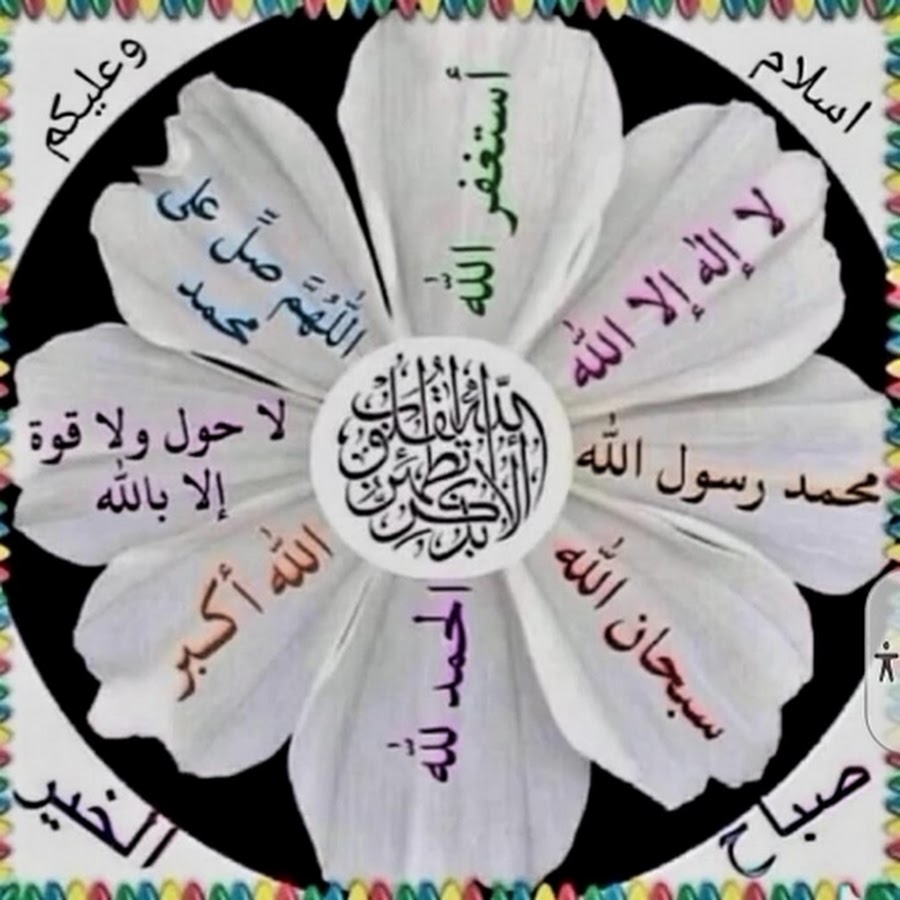 اسلام
وعليكم
أستغفر الله
لا إله إلا الله
محمد رسول الله
سبحان الله
الحمد لله
الله أكبر
لا حول ولا قوة
إلا بالله
اللهُمَّ صلِّ على
محمد
ألا بذكر الله تطمئن القلوب
صباح
الخير